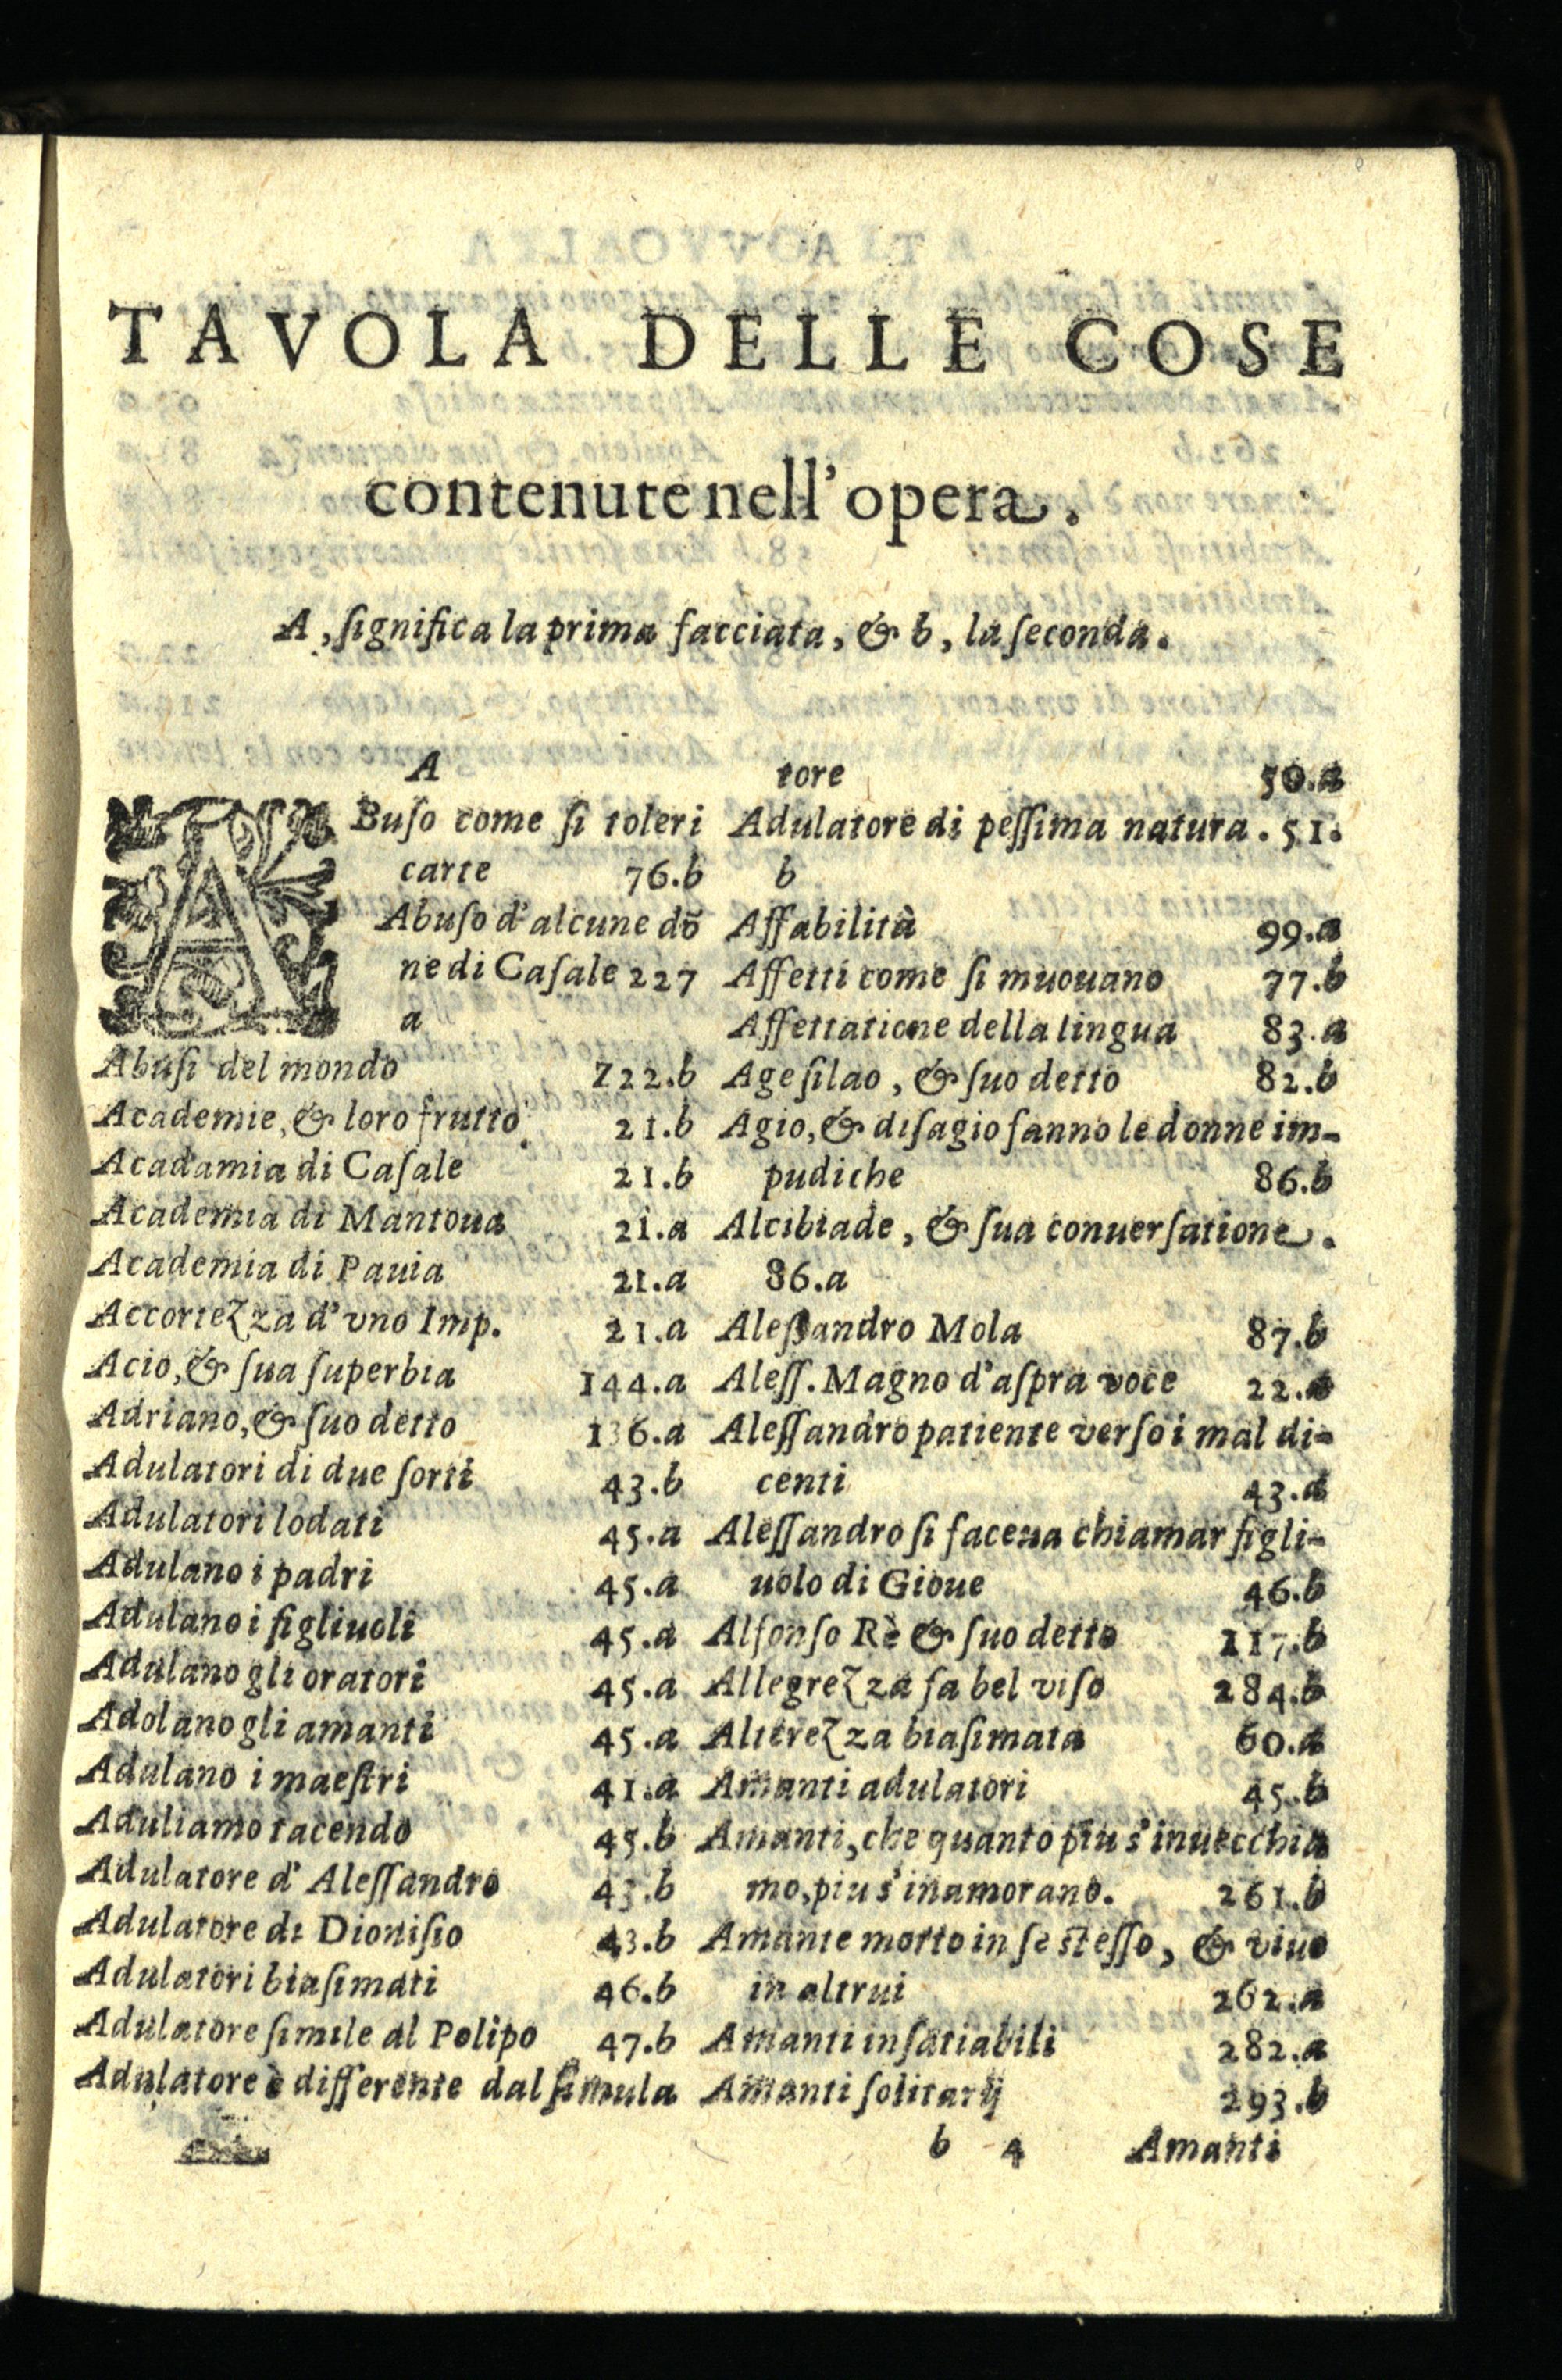 TAVOLA DELLE COSE
contenute nell'opera.
A, ſignifica la prima facciata, & b, la ſeconda.
A
ABuſo come ſi toleri
carte 76.b
Abuſo d'alcune dō
ne di Caſale 227
a
Abuſi del mondo 222.b
Academie, & loro frutto 21.b
Acadamia di Caſale 21.b
Academia di Mantoua 21.a
Academia di Pauia 21.a
Accortezza d'vno Imp. 21.a
Acio, & ſua ſuperbia 144.a
Adriano, & ſuo detto 136.a
Adulatori di due ſorti 43.b
Adulatori lodati 45.a
Adulano i padri 45.a
Adulano i figliuoli 45.a
Adulano gli oratori 45.a
Adolano gli amanti 45.a
Adulano i maeſtri 41.a
Aduliamo tacendo 45.b
Adulatore d'Aleſſandro 43.b
Adulatore di Dioniſio 43.b
Adulatori biaſimati 46.b
Adulatore ſimile al Polipo 47.b
Adulatore è differente dal ſimula
tore 50.a
Adulatore di peſſima natura. 51.
b
Affabilità 99.a
Affetti come ſi muouano 77.b
Affettatione della lingua 83.a
Ageſilao, & ſuo detto 82.b
Agio, & diſagio fanno le donne im-
pudiche 86.b
Alcibiade, & ſua conuerſatione.
86.a
Aleſſandro Mola 87.b
Aleſſ. Magno d'aſpra voce 22.a
Aleſſandro patiente verſo i mal di-
centi 43.a
Aleſſandro ſi faceua chiamar figli-
uolo di Gioue 46.b
Alfonſo Rè & ſuo detto 117.b
Allegrezza fa bel viſo 284.b
Alterezza biaſimata 60.a
Amanti adulatori 45.b
Amanti, che quanto piu s'inuecchia
mo, piu s'inamorano. 261.b
Amante morto in ſe ſteſſo, & viuo
in altrui 262.a
Amanti inſatiabili 282.a
Amanti ſolitarij 293.b
b 4 Amanti